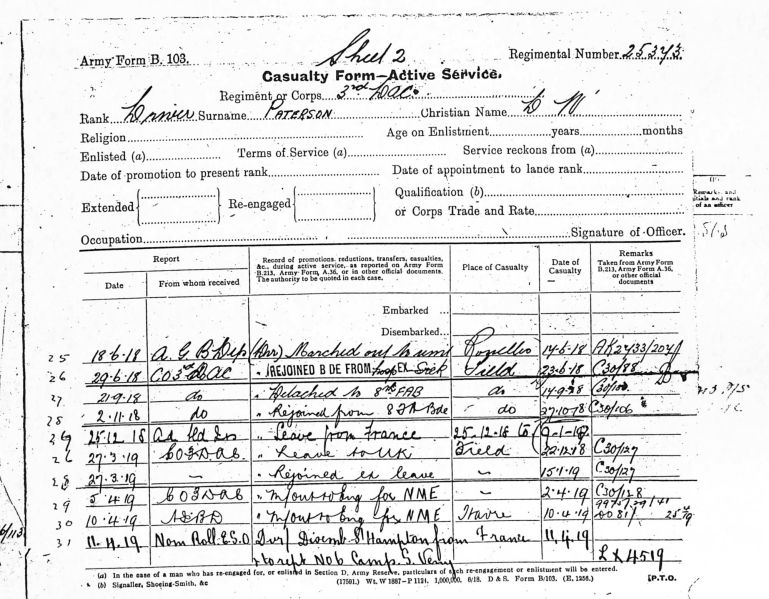 Sheet 2
Army Form B. 103.
Regimental Number 25343
Casualty Form—Active Service.
Regiment or Corps 3rd DAC.
Rank Driver Surname PATERSON Christian Name D W
Religion Age on Enlistment years months
Enlisted (a) Terms of Service (a) Service reckons from (a)
Date of promotion to present rank Date of appointment to lance rank
Extended Re-engaged Qualification (b)
or Corps Trade and Rate
Occupation Signature of Officer.
Report Record of promotions, reductions, transfers, casualties, &c., during active service, as reported on Army Form B.213, Army Form A.36, or in other official documents. The authority to be quoted in each case. Place of Casualty Date of Casualty Remarks Taken from Army Form B.213, Army Form A.36, or other official documents
Date From whom received
Embarked ...
Disembarked ...
25 18-6-18 A. G. B. Dep (Dvr) Marched out to unit 14-6-18
26 29-6-18 CO 3rd DAC " REJOINED B DE FROM Sick Field 23-6-18 C30/88
27 21-9-18 do " Detached to 8th FAB do 14-9-18
28 2.11.18 do " Rejoined from 8 FA Bde do 27-10-18 C30/106
25.12.18 " Leave from France 25.12.18 to 9-1-19
26 27.3.19 CO 3 DAC " Leave to UK Field 22.12.18 C30/127
28 27.3.19 — " Rejoined ex leave — 15.1.19 C30/127
29 5.4.19 CO 3 DAC " M/out to Eng for NME — 2.4.19 C30/128
30 10.4.19 " M/out to Eng for NME Havre 10.4.19
31 11.4.19 Nom Roll E.S.O Dvr Disemb S'Hampton from France 11.4.19
(a) In the case of a man who has re-engaged for, or enlisted in Section D, Army Reserve, particulars of such re-engagement or enlistment will be entered.
(b) Signaller, Shoeing-Smith, &c
(17591.) Wt. W 1887—P 1124. 1,000,000. 8/18. D & S. Form B/103. (E. 1256.) [P.T.O.